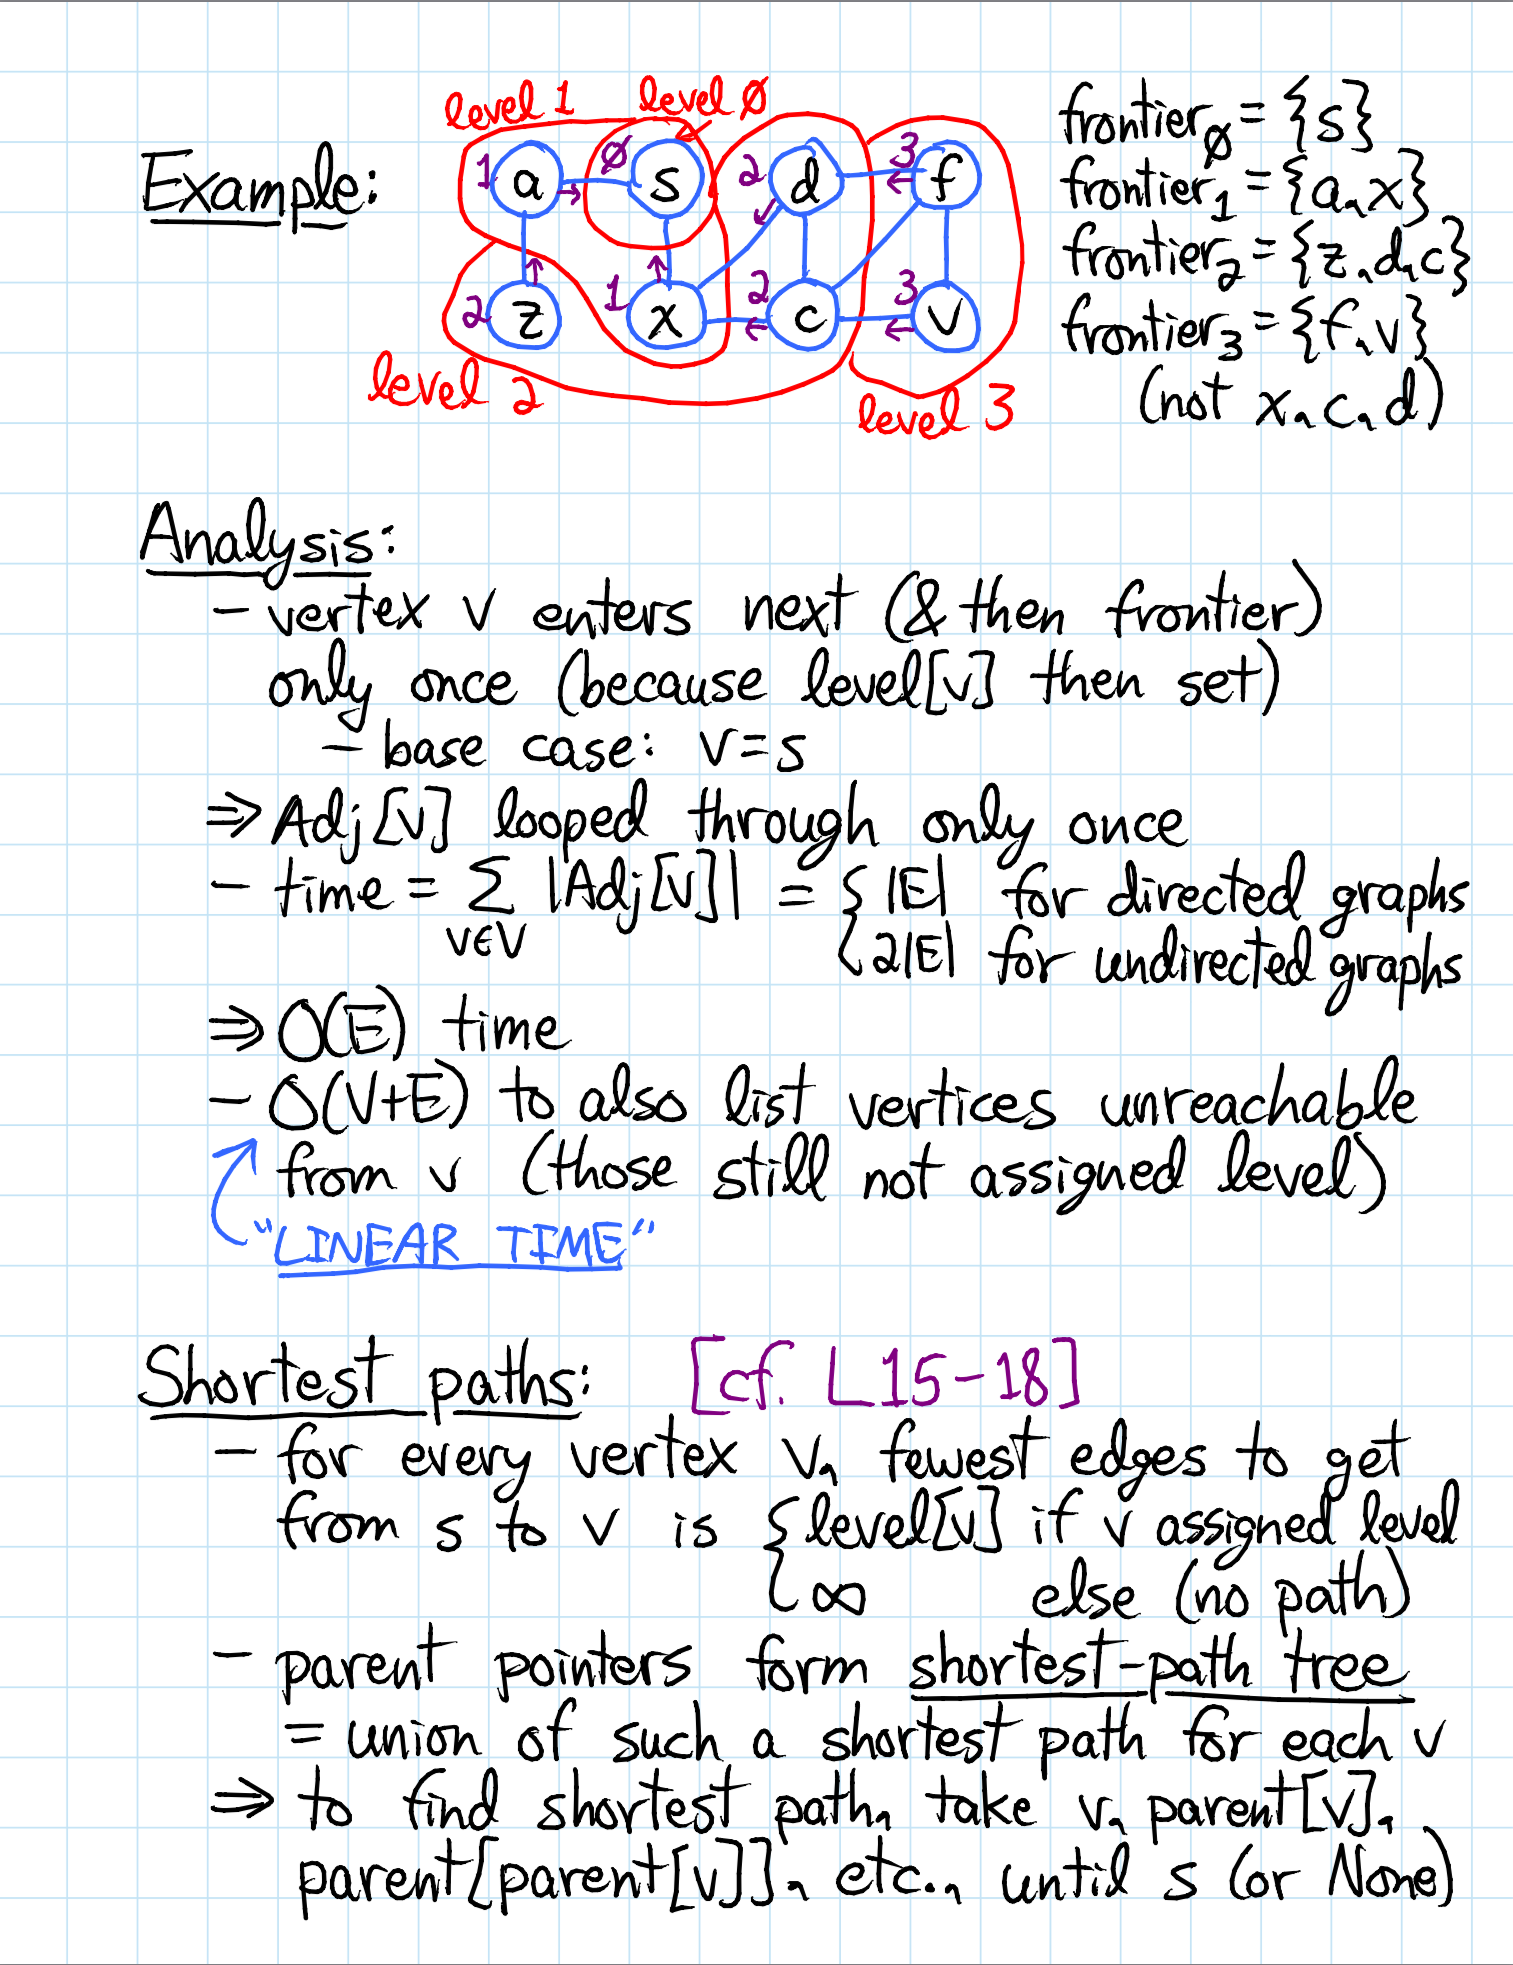 level 1 level Ø
Example:
1 a Ø s 2 d 3 f
2 z 1 x 2 c 3 v
level 2 level 3
frontierØ = {s}
frontier1 = {a, x}
frontier2 = {z, d, c}
frontier3 = {f, v}
(not x, c, d)
Analysis:
- vertex v enters next (& then frontier)
only once (because level[v] then set)
- base case: v=s
⇒ Adj[v] looped through only once
- time = Σ |Adj[v]| = { |E| for directed graphs
v∈V { 2|E| for undirected graphs
⇒ O(E) time
- O(V+E) to also list vertices unreachable
from v (those still not assigned level)
"LINEAR TIME"
Shortest paths: [cf. L15-18]
- for every vertex v, fewest edges to get
from s to v is { level[v] if v assigned level
{ ∞ else (no path)
- parent pointers form shortest-path tree
= union of such a shortest path for each v
⇒ to find shortest path, take v, parent[v],
parent[parent[v]], etc., until s (or None)